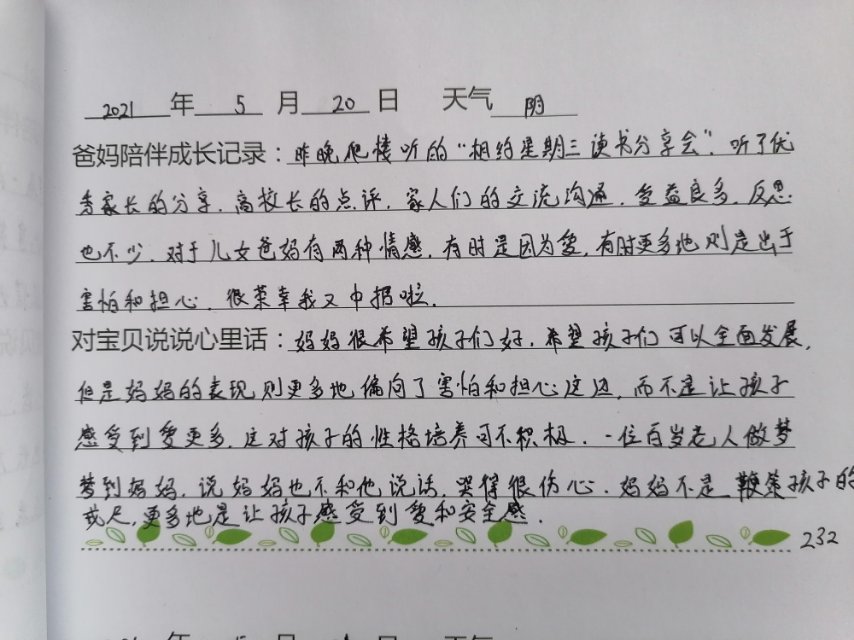 2021 年 5 月 20 日 天气 阴
爸妈陪伴成长记录：昨晚爬楼听的“相约星期三读书分享会”，听了优
秀家长的分享，高校长的点评，家人们的交流沟通，受益良多，反思
也不少，对于儿女爸妈有两种情感，有时是因为爱，有时更多地则是出于
害怕和担心，很荣幸我又中招啦。
对宝贝说说心里话：妈妈很希望孩子们好，希望孩子们可以全面发展，
但是妈妈的表现则更多地偏向了害怕和担心这边，而不是让孩子
感受到爱更多，这对孩子的性格培养可不积极。一位百岁老人做梦
梦到妈妈，说妈妈也不和他说话，哭得很伤心。妈妈不是鞭策孩子的
戒尺，更多地是让孩子感受到爱和安全感。
232